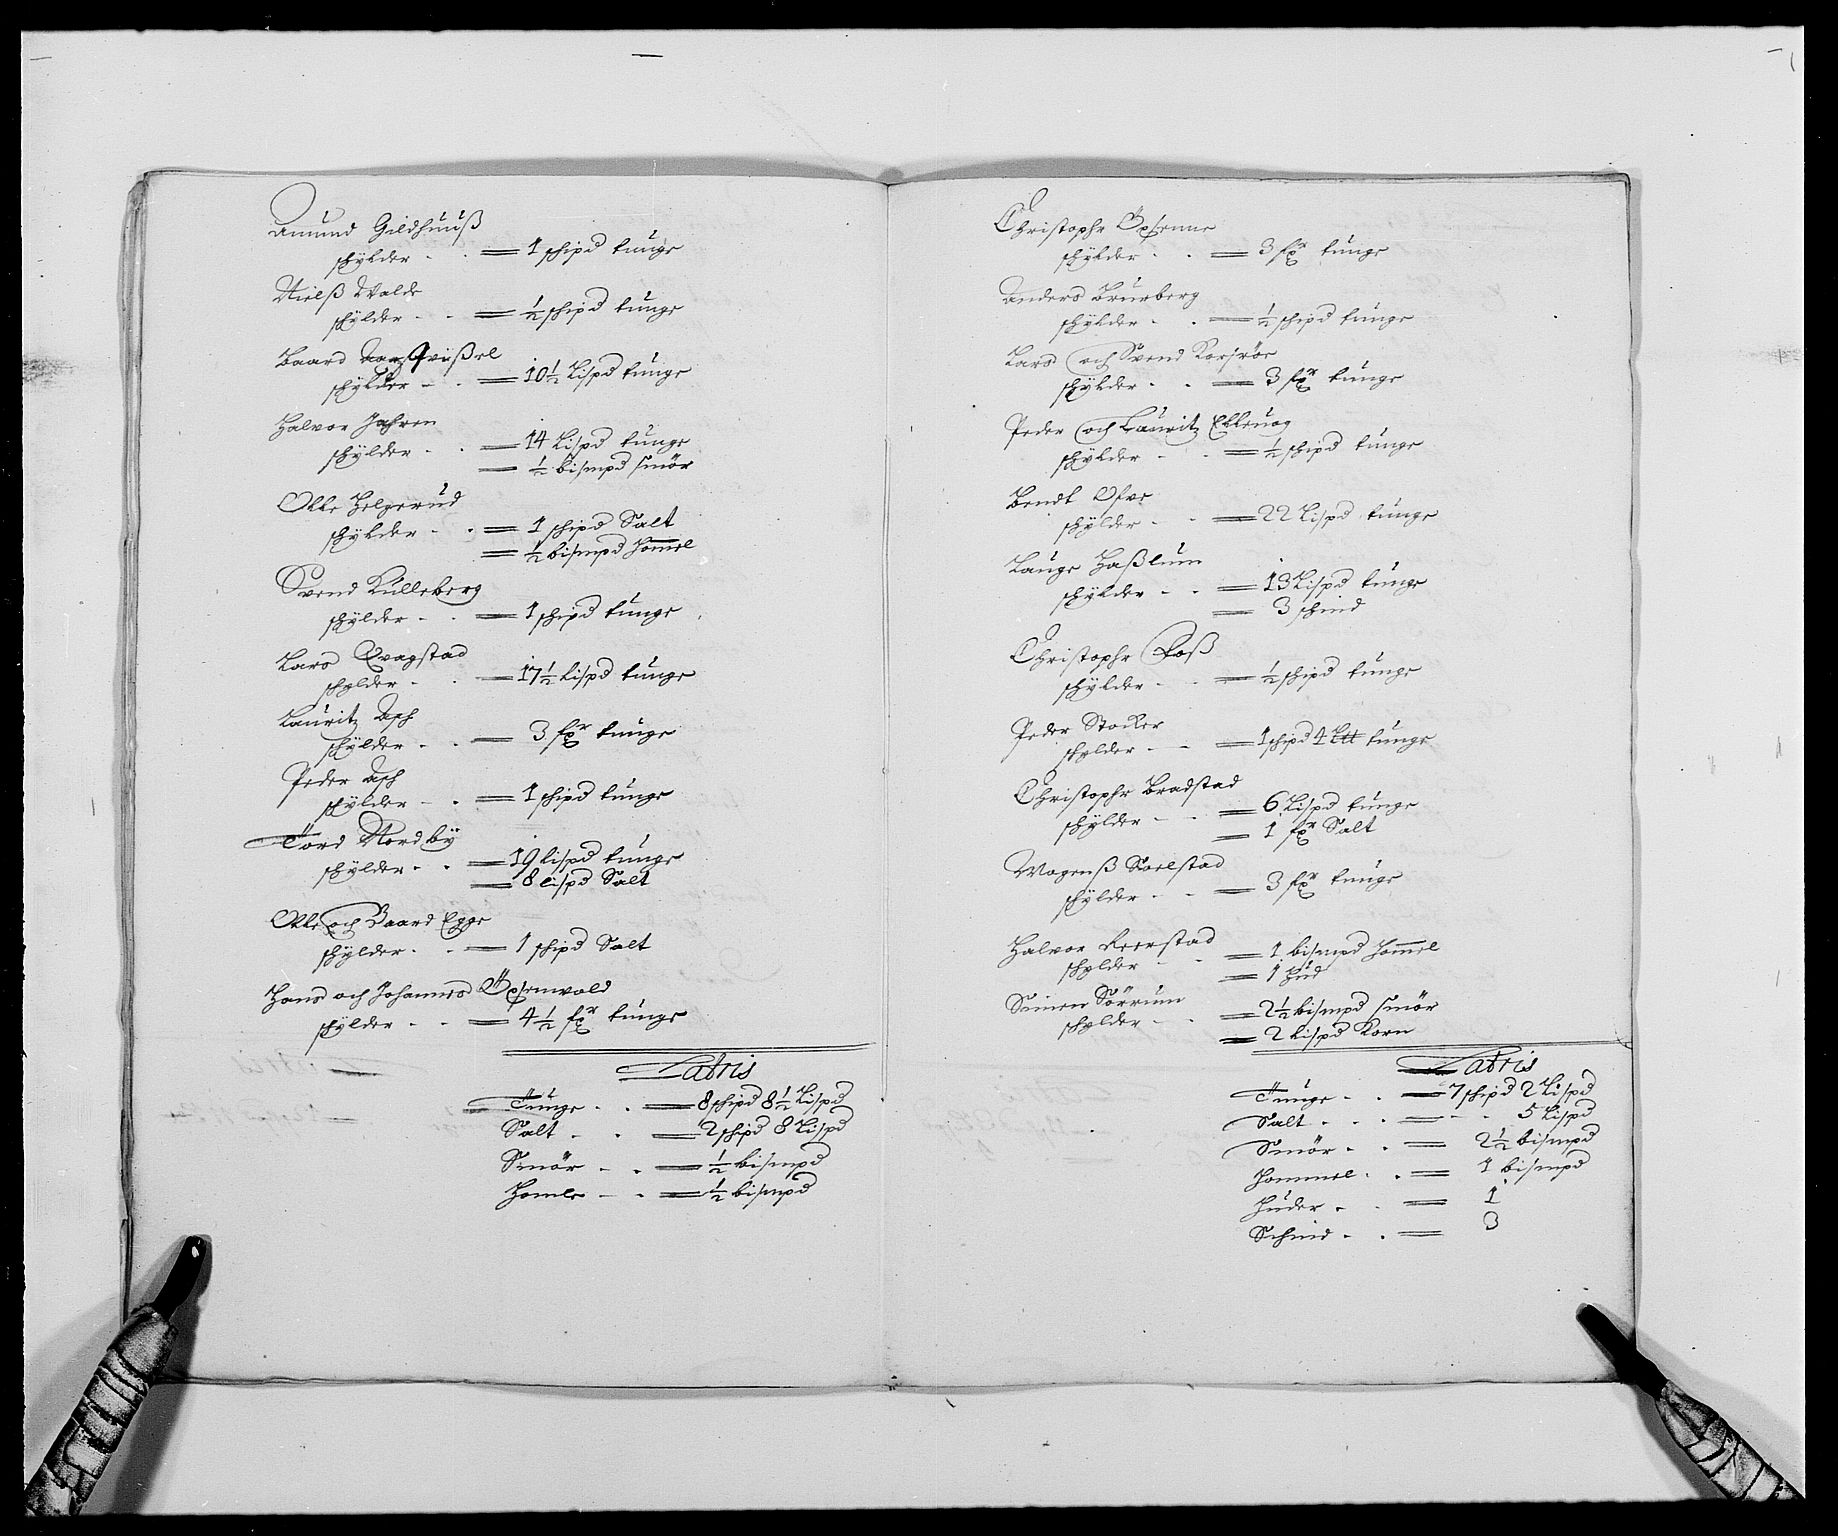 Amund Gildhuuß
schÿlder - - = 1 schipd tunge
Nielß Walde
schÿlder - - = ½ schipd tunge
Baard Qvißel
schÿlder - - = 10½ Lispd tunge
Halvor Jahren
schÿlder - - = 14 Lispd tunge
= ½ bismpd smör
Olle Helgerud
schÿlder - - = 1 schipd Salt
= ½ bismpd Homel
Svend Kulleberg
schÿlder - - = 1 schipd tunge
Lars Qvagstad
schylder - - = 17½ Lispd tunge
Lauritz Asch
schÿlder - - = 3 fxr tunge
Peder Asch
schÿlder - - = 1 schipd tunge
Tord Nordbÿ
schÿlder - - = 19 Lispd tunge
= 8 Lispd Salt
Olle och Baard Egge
schÿlder - - = 1 schipd Salt
Hans och Johannes Opsenvald
schÿlder - - = 4½ fxr tunge
Latris
Tunge - - = 8 schipd 8½ Lispd
Salt - - = 2 schipd 8 Lispd
Smör - - = ½ bismpd
Homle - - = ½ bismpd
Christopher Opsenne
schÿlder - - = 3 fxr tunge
Anders Bruuberg
schÿlder - - = ½ schipd tunge
Lars och Svend Korsröe
schÿlder - - = 3 fxr tunge
Peder och Lauritz Ellevog
schÿlder - - = ½ schipd tunge
Bendt Ofve
schÿlder - - = 22 Lispd tunge
Lauge Haßlum
schÿlder - - = 13 Lispd tunge
= 3 schind
Christopher Foß
schÿlder - - = ½ schipd tunge
Peder Stocker
schylder - - = 1 schipd 4 Ltt tunge
Christopher Bradstad
schÿlder - - = 6 Lispd tunge
= 1 fxr Salt
Mogenß Skoelstad
schÿlder - - = 3 fxr tunge
Halvor Reerstad
schylder - - = 1 bismpd Homel
= 1 Hud
Simen Sörrum
schylder - - = 2½ bismpd smör
= 2 Lispd Korn
Latris
Tunge - - = 7 schipd 2 Lispd
Salt - - - = - - 5 Lispd
Smör - - = 2½ bismpd
Hommel - - = 1 bismpd
Huder - - = 1
Schind - - = 3